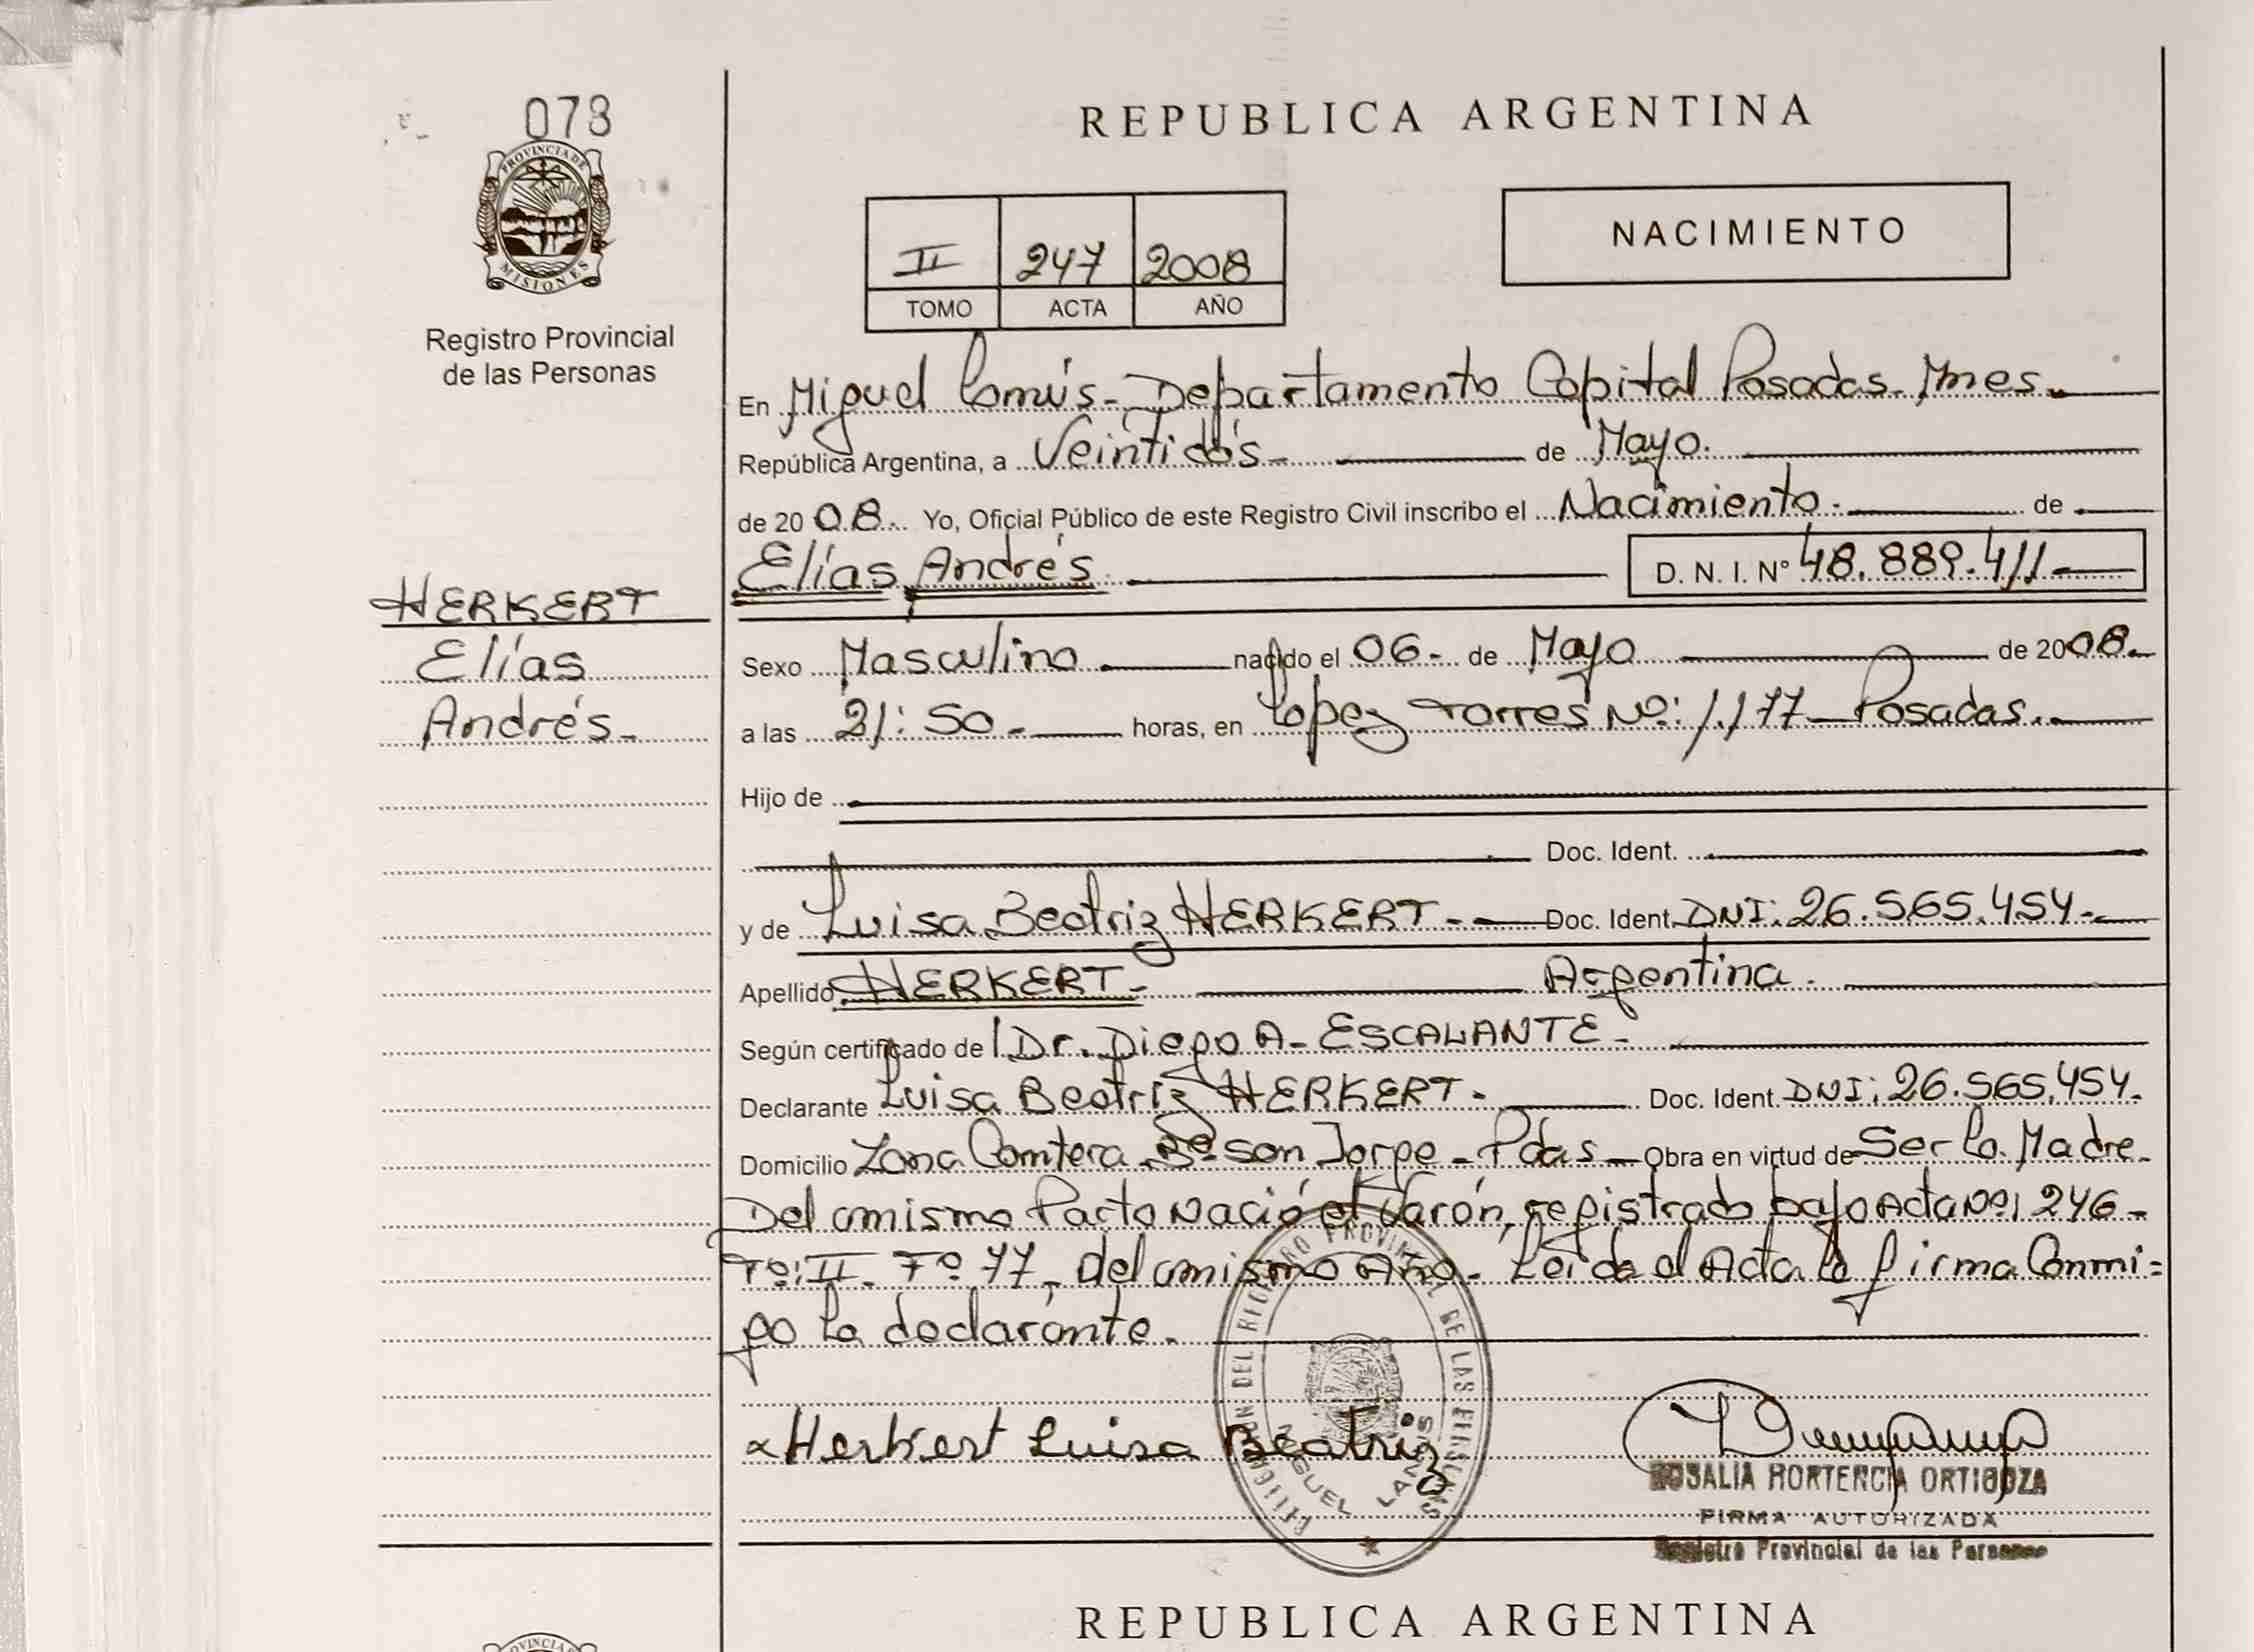 078
PROVINCIA DE
MISIONES
Registro Provincial
de las Personas
REPUBLICA ARGENTINA
II 247 2008
TOMO ACTA AÑO
NACIMIENTO
En Miguel Lanús - Departamento Capital Posadas - Mnes.
República Argentina, a Veintidós - de Mayo.
de 2008. Yo, Oficial Público de este Registro Civil inscribo el Nacimiento - de
Elías Andrés. D. N. I. Nº 48.889.411 -
HERKERT
Elías
Andrés -
Sexo Masculino nacido el 06 - de Mayo de 2008.
a las 21:50 - horas, en Lopez Torres Nº: 1.177 - Posadas.
Hijo de
Doc. Ident.
y de Luisa Beatriz HERKERT - Doc. Ident. DNI: 26.565.454 -
Apellido HERKERT - Argentina.
Según certificado del Dr. Diego A - ESCALANTE -
Declarante Luisa Beatriz HERKERT - Doc. Ident. DNI: 26.565.454.
Domicilio Zona Bº San Jorge - Pdas - Obra en virtud de Ser la Madre -
Del mismo Parto Nació el Varón, registrado bajo Acta Nº: 246 -
Tº: II - Fº 77 - del mismo Año - Leída el Acta la firma Conmi=
go la declarante.
Herkert Luisa Beatriz
DEL REGISTRO PROVINCIAL DE LAS PERSONAS
MIGUEL LANUS
ROSALIA HORTENCIA ORTIGOZA
FIRMA AUTORIZADA
Registro Provincial de las Personas
REPUBLICA ARGENTINA
PROVINCIA